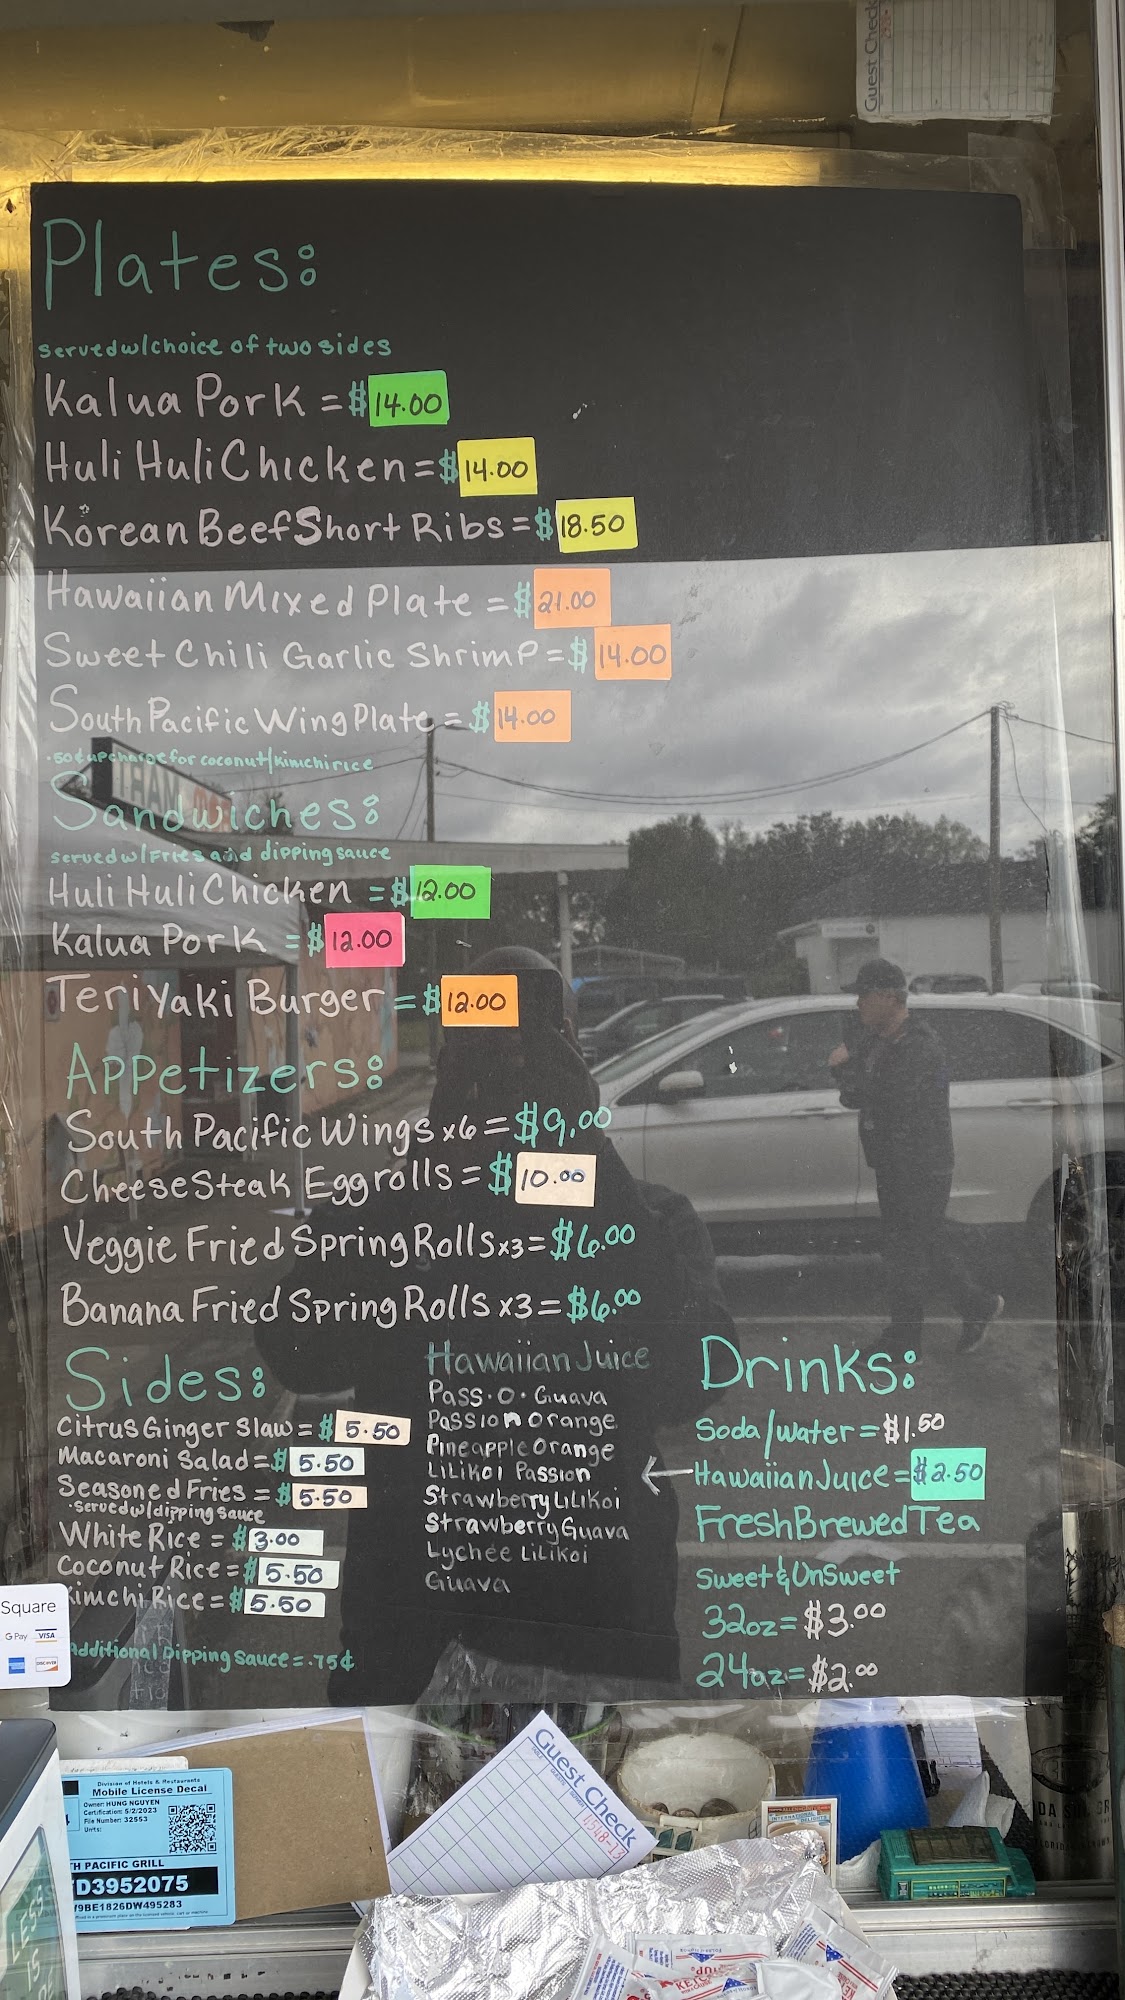 Guest Check
Plates:
served w/choice of two sides
Kalua Pork = $14.00
Huli Huli Chicken = $14.00
Korean Beef Short Ribs = $18.50
Hawaiian Mixed Plate = $21.00
Sweet Chili Garlic Shrimp = $14.00
South Pacific Wing Plate = $14.00
·50¢ upcharge for coconut/kimchi rice
Sandwiches:
served w/Fries and dipping sauce
Huli Huli Chicken = $12.00
Kalua Pork = $12.00
Teriyaki Burger = $12.00
Appetizers:
South Pacific Wings x6 = $9.00
Cheesesteak Eggrolls = $10.00
Veggie Fried Spring Rolls x3 = $6.00
Banana Fried Spring Rolls x3 = $6.00
Sides:
Citrus Ginger Slaw = $5.50
Macaroni Salad = $5.50
Seasoned Fries = $5.50
·served w/dipping sauce
White Rice = $3.00
Coconut Rice = $5.50
Kimchi Rice = $5.50
Additional Dipping Sauce = .75¢
Hawaiian Juice
Pass·O·Guava
Passion Orange
Pineapple Orange
Lilikoi Passion
Strawberry Lilikoi
Strawberry Guava
Lychee Lilikoi
Guava
Drinks:
Soda/water = $1.50
Hawaiian Juice = $2.50
Fresh Brewed Tea
Sweet & UnSweet
32oz = $3.00
24oz = $2.00
Square
G Pay VISA
DISCOVER
Division of Hotels & Restaurants
Mobile License Decal
Owner: HUNG NGUYEN
Certification: 5/2/2023
File Number: 32553
Units:
TH PACIFIC GRILL
D3952075
9BE1826DW495283
Guest Check
1548-13
INTERNATIONAL
DELIGHTS